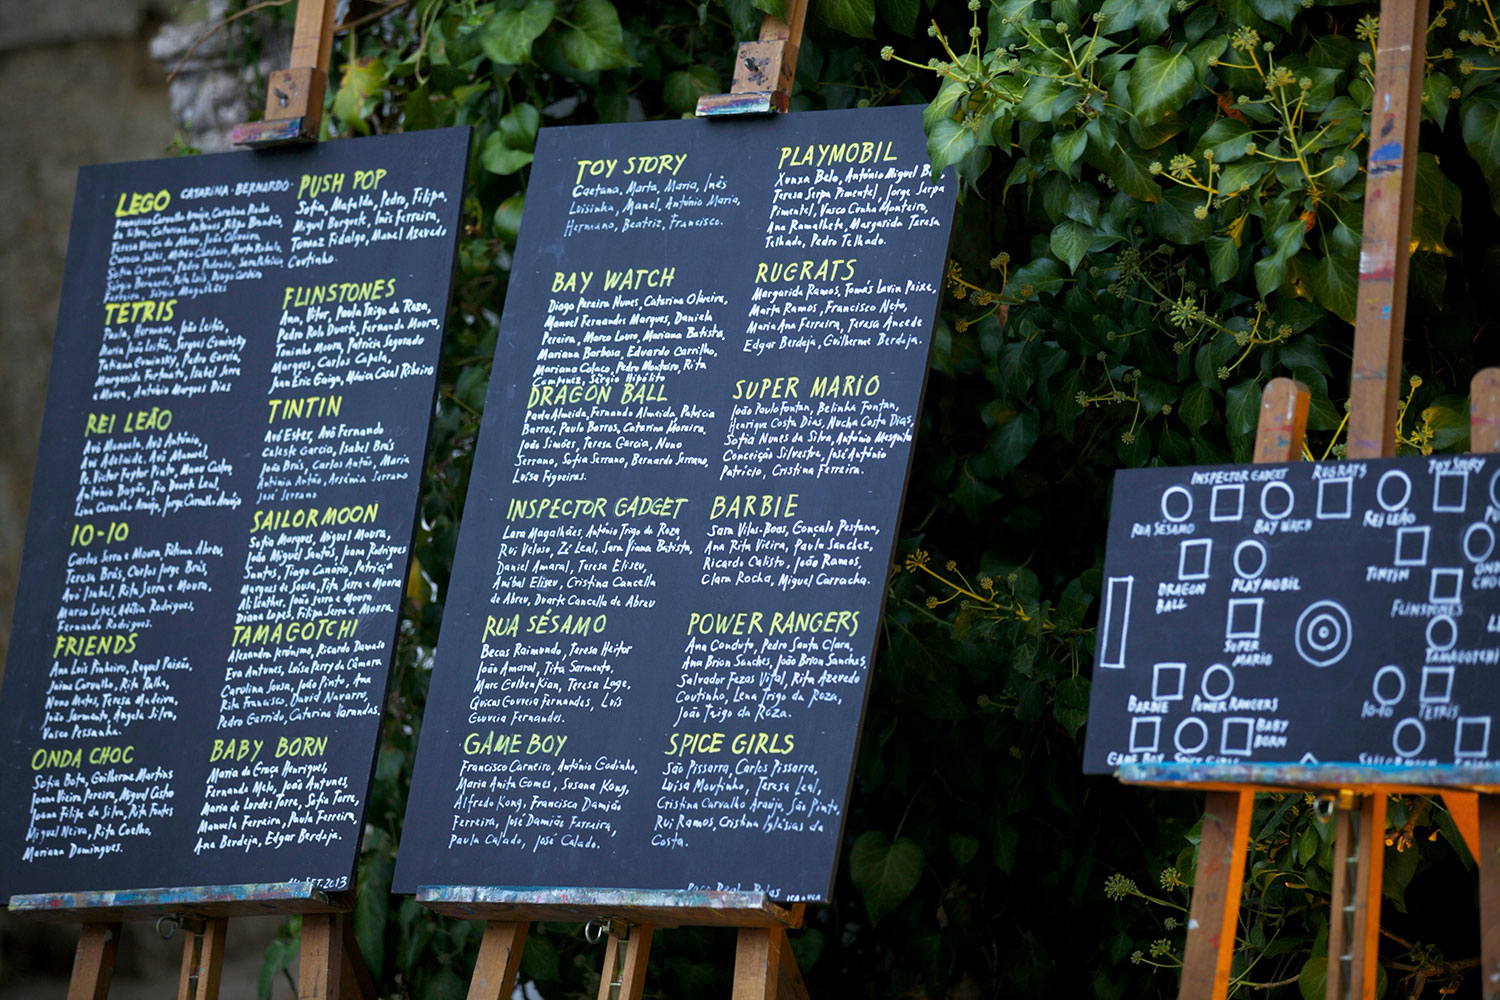 LEGO CATARINA · BERNARDO
Teresa Vieira de Abreu, João Oliveira,
TETRIS
Paula, Hermano, João Leitão,
Maria João Leitão, Sergus Cuminsky
Tatiana Cuminsky, Pedro Garcia,
Margarida Fortunato, Isabel Serra
e Moura, António Marques Dias
REI LEÃO
Avó Manuela, Avô António,
Avó Adelaide, Avô Manuel,
Lina Carvalho Araújo, Jorge Carvalho Araújo
10-10
Carlos Serra e Moura, Fátima Abreu,
Teresa Brás, Carlos Jorge Brás,
Avó Isabel, Rita Serra e Moura,
Marco Lopes, Adélia Rodrigues,
Fernando Rodrigues.
FRIENDS
Ana Luis Pinheiro, Raquel Paixão,
Jaime Carvalho, Rita Ralha,
Nuno Matos, Teresa Madeira,
João Sarmento, Angela Silva,
Vasco Pessanha.
ONDA CHOC
Sofia Bota, Guilherme Martins
Joana Vieira Pereira, Miguel Castro
Joana Filipa da Silva, Rita Fontes
Miguel Neiva, Rita Coelho,
Mariana Domingues.
PUSH POP
Sofia, Mafalda, Pedro, Filipa,
Miguel Borgete, Inês Ferreira,
Tomaz Fidalgo, Manel Azevedo
Coutinho.
FLINSTONES
Ana, Vitor, Paula Trigo da Roza,
Pedro Rolo Duarte, Fernanda Moura,
Toninho Moura, Patrícia Segurado
Marques, Carlos Capela,
Juan Eric Gaiga, Mónica Casal Ribeiro
TINTIN
Avó Ester, Avô Fernando
Celeste Garcia, Isabel Brás
João Brás, Carlos Antão, Maria
Antónia Antão, Arsénia Serrano
José Serrano
SAILORMOON
Sofia Marques, Miguel Moura,
João Miguel Santos, Joana Rodrigues
Santos, Tiago Canário, Patrícia
Marques de Sousa, Tita Serra e Moura
Ali Leather, João Serra e Moura
Diana Lopes, Filipa Serra e Moura.
TAMAGOTCHI
Alexandra Jerónimo, Ricardo Damaso
Eva Antunes, Luísa Perry da Câmara
Carolina Sousa, João Pinto, Ana
Rita Francisco, David Navarro,
Pedro Garrido, Catarina Varandas.
BABY BORN
Maria da Graça Henriques,
Fernanda Melo, João Antunes,
Maria de Lurdes Torre, Sofia Torre,
Manuela Ferreira, Paula Ferreira,
Ana Berdeja, Edgar Berdeja.
14 SET. 2013
TOY STORY
Caetana, Marta, Maria, Inês
Luisinha, Manel, António Maria,
Hermano, Beatriz, Francisco.
BAY WATCH
Diogo Pereira Nunes, Catarina Oliveira,
Manuel Fernandes Marques, Daniela
Pereira, Marco Louro, Mariana Batista,
Mariana Barbosa, Eduardo Carrilho,
Mariana Colaço, Pedro Monteiro, Rita
Sérgio Hipólito
DRAGON BALL
Paula Almeida, Fernando Almeida, Patrícia
Barros, Paulo Barros, Catarina Moreira,
João Simões, Teresa Garcia, Nuno
Serrano, Sofia Serrano, Bernardo Serrano,
Luísa Figueiras.
INSPECTOR GADGET
Lara Magalhães, António Trigo da Roza,
Rui Veloso, Zé Leal, Sara Viana Batista,
Daniel Amaral, Teresa Eliseu,
Anibal Eliseu, Cristina Cancella
de Abreu, Duarte Cancella de Abreu
RUA SÉSAMO
Becas Raimundo, Teresa Heitor
João Amaral, Tita Sarmento,
Marc Gulbenkian, Teresa Lage,
Quicas Gouveia Fernandes, Luís
Gouveia Fernandes.
GAME BOY
Francisco Carneiro, António Godinho,
Maria Anita Gomes, Susana Kong,
Alfredo Kong, Francisca Damião
Ferreira, José Damião Ferreira,
Paula Calado, José Calado.
PLAYMOBIL
Xunxa Belo, António Miguel
Teresa Serpa Pimentel, Jorge Serpa
Pimentel, Vasco Cunha Monteiro,
Ana Ramalhete, Margarida Teresa
Telhado, Pedro Telhado.
RUGRATS
Margarida Ramos, Tomás Lavin Peixe,
Marta Ramos, Francisco Neto,
Maria Ana Ferreira, Teresa Ancede
Edgar Berdeja, Guilherme Berdeja.
SUPER MARIO
João Paulo Fontan, Belinha Fontan,
Henrique Costa Dias, Nucha Costa Dias,
Sofia Nunes da Silva, António Mesquita
Conceição Silvestre, José António
Patrício, Cristina Ferreira.
BARBIE
Sara Vilas-Boas, Gonçalo Pestana,
Ana Rita Vieira, Paula Sanchez,
Ricardo Calisto, João Ramos,
Clara Rocha, Miguel Carracha.
POWER RANGERS
Ana Conduto, Pedro Santa Clara,
Ana Brion Sanches, João Brion Sanches,
Salvador Fezas Vital, Rita Azevedo
Coutinho, Lena Trigo da Roza,
João Trigo da Roza.
SPICE GIRLS
São Pissarra, Carlos Pissarra,
Luisa Moutinho, Teresa Leal,
Cristina Carvalho Araújo, São Pinto,
Rui Ramos, Cristina Iglésias da
Costa.
INSPECTOR GADGET
RUGRATS
TOY STORY
RUA SÉSAMO
BAY WATCH
REI LEÃO
DRAGON
BALL
PLAYMOBIL
TINTIN
FLINSTONES
SUPER
MARIO
TAMAGOTCHI
BARBIE
POWER RANGERS
10-10
TETRIS
BABY
BORN
GAME BOY
SPICE GIRLS
SAILORMOON